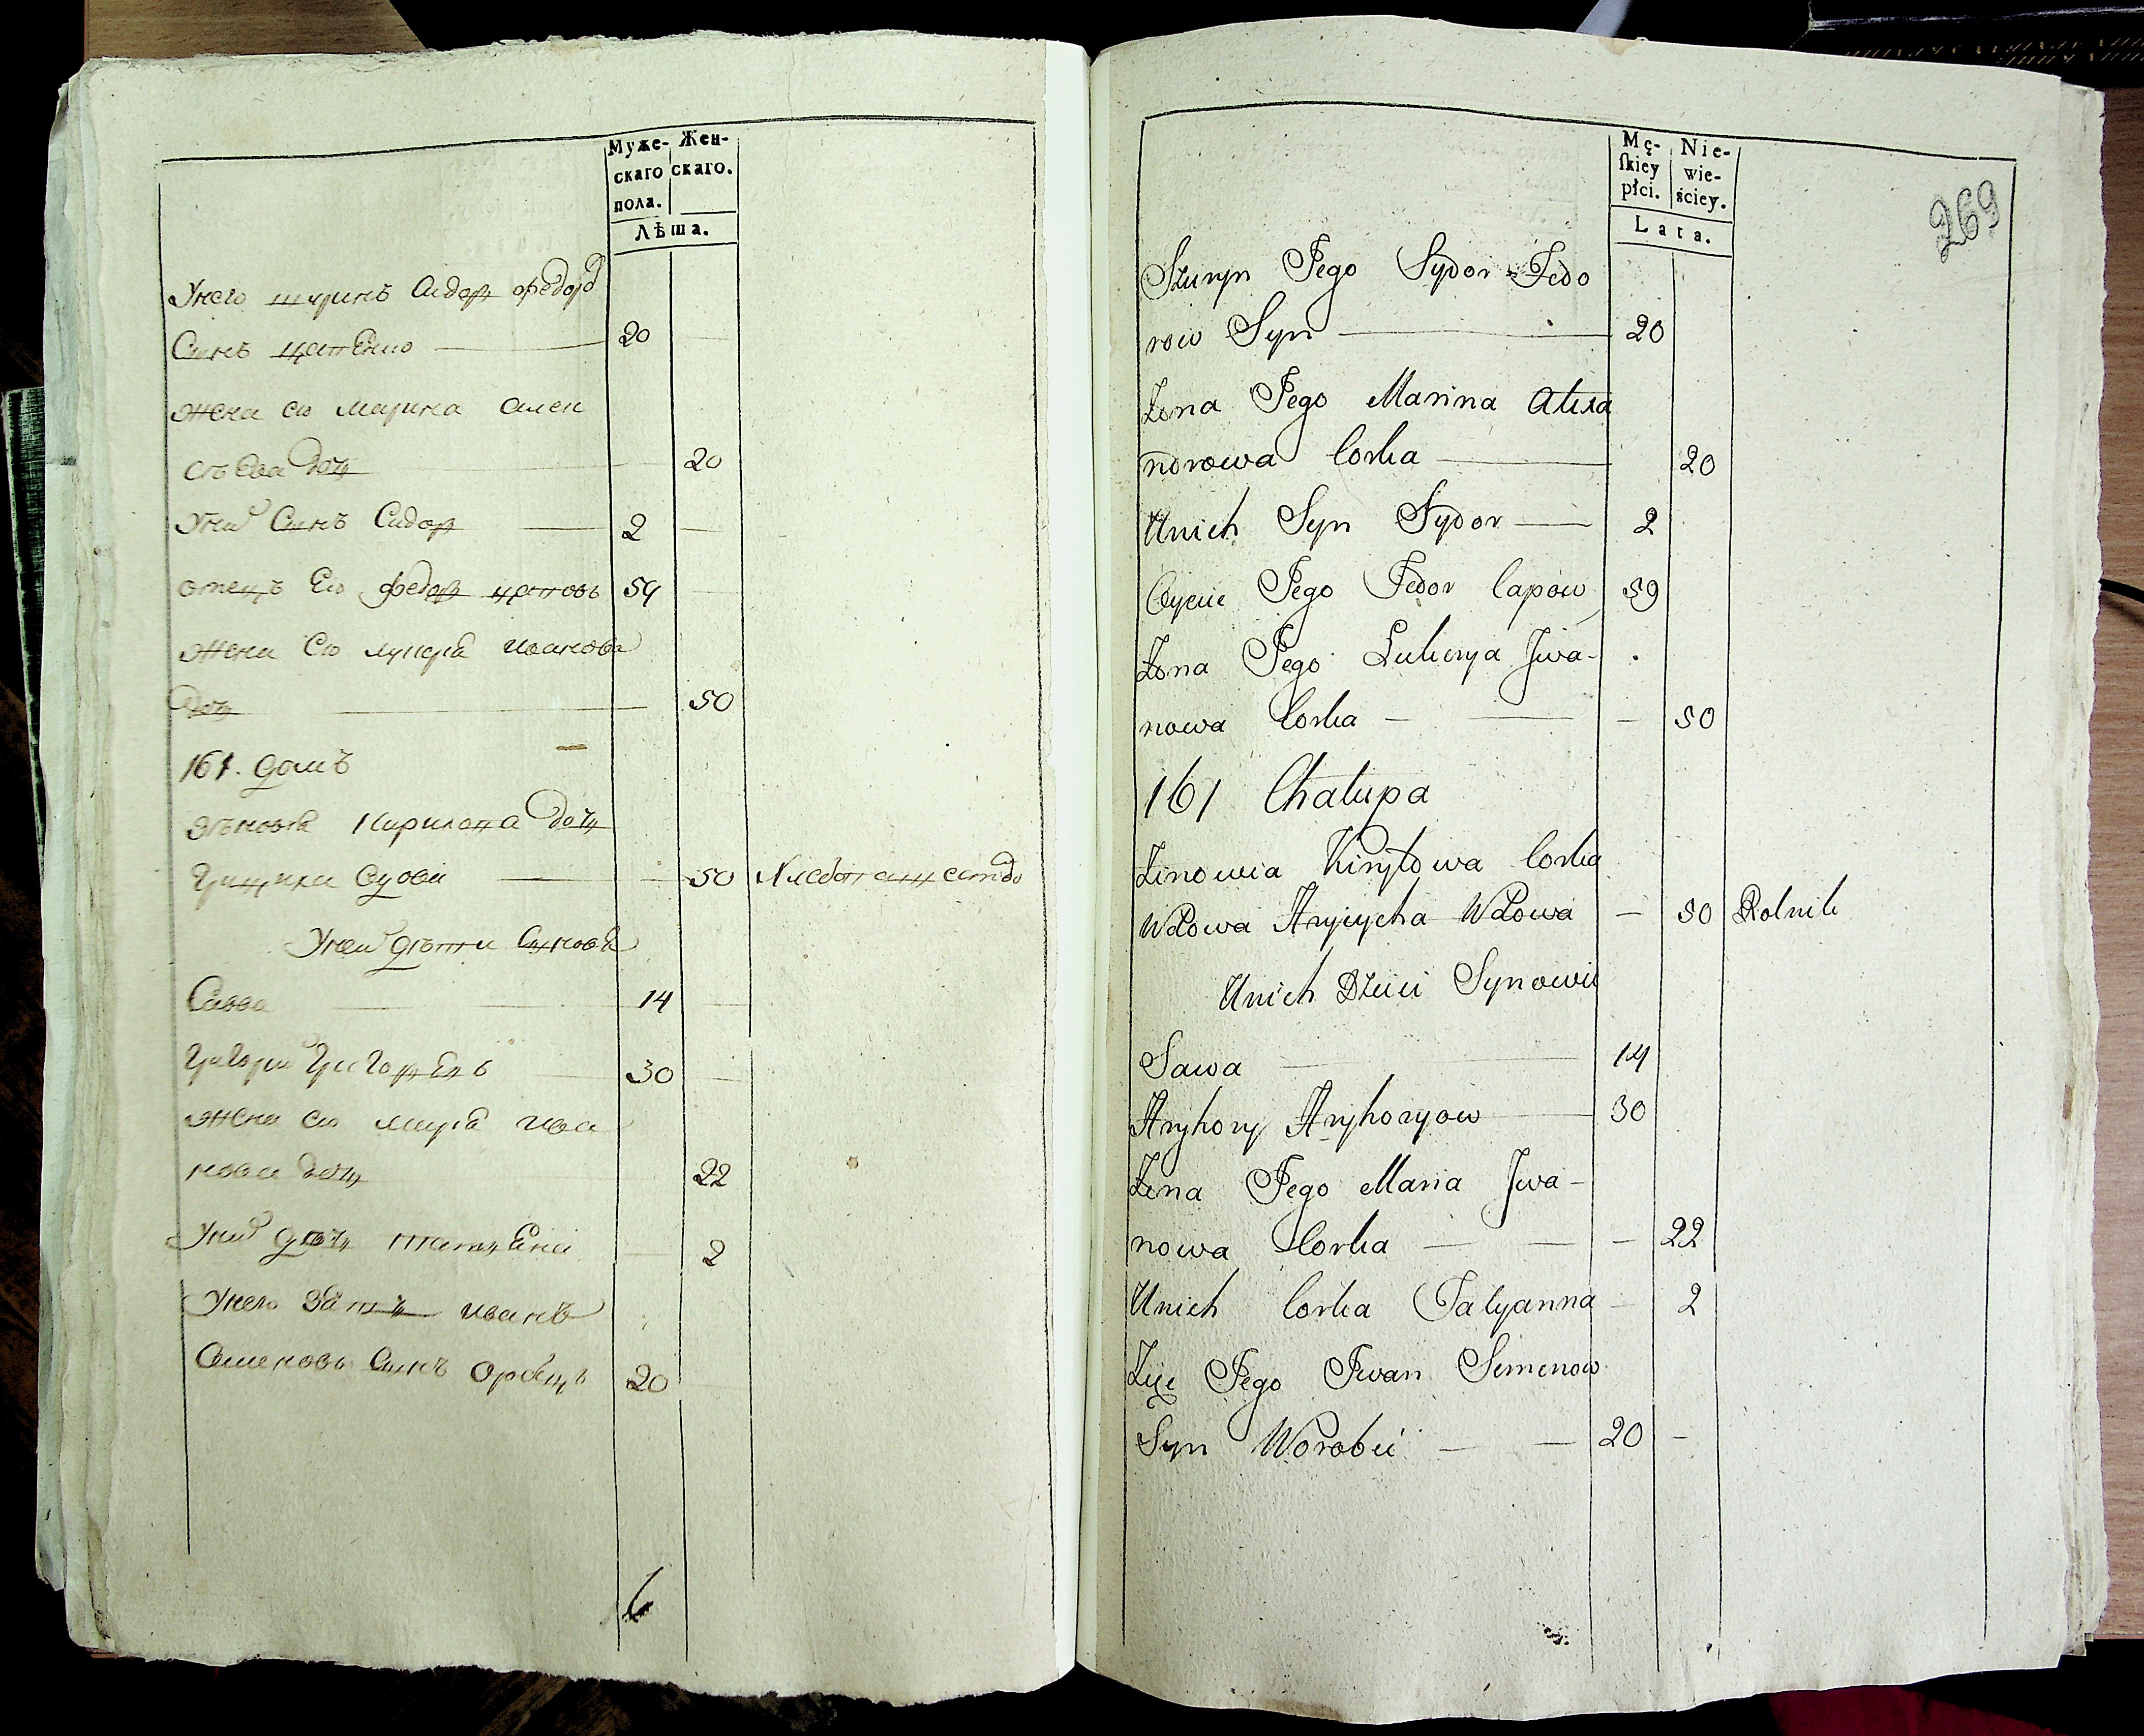 Муже-
скаго
пола.
Жен-
скаго.
Лѣта.
Унего шуринъ Сидор федоров
Синъ
20
жена его марина алек
дочь
20
Уних Синъ Сидор
2
отецъ Его федор цаповъ
59
жена Его лукеря иванова
дочь
50
161. домъ
зѣновія Кирилова дочь
50
Хлебопашество
Уней дѣти Синове
Савва
14
Григори Григориевъ
30
жена его мария ива
нова дочь
22
Уних дочь татиена
2
Унего зать иванъ
Семеновъ Синъ
20
6
Mę-
ſkiey
płci.
Nie-
wie-
ściey.
Lata.
269
Szuryn Jego Sydor Fedo
row Syn
20
Zona Jego Marina Alexa
ndrowa Corka
20
Unich Syn Sydor
2
Oyciec Jego Fedor Capow
59
Zona Jego Lukerya Jwa-
nowa Corka
50
161 Chalupa
Zinowia Kiryłowa Corka
Wdowa Hrycycha Wdowa
50
Rolnik
Unich Dzieci Synowie
Sawa
14
Hryhory Hryhoryow
30
Zena Jego Maria Jwa-
nowa Corka
22
Unich Corka Tatyanna
2
Zięć Jego Jwan Semenow
Syn Worobei
20